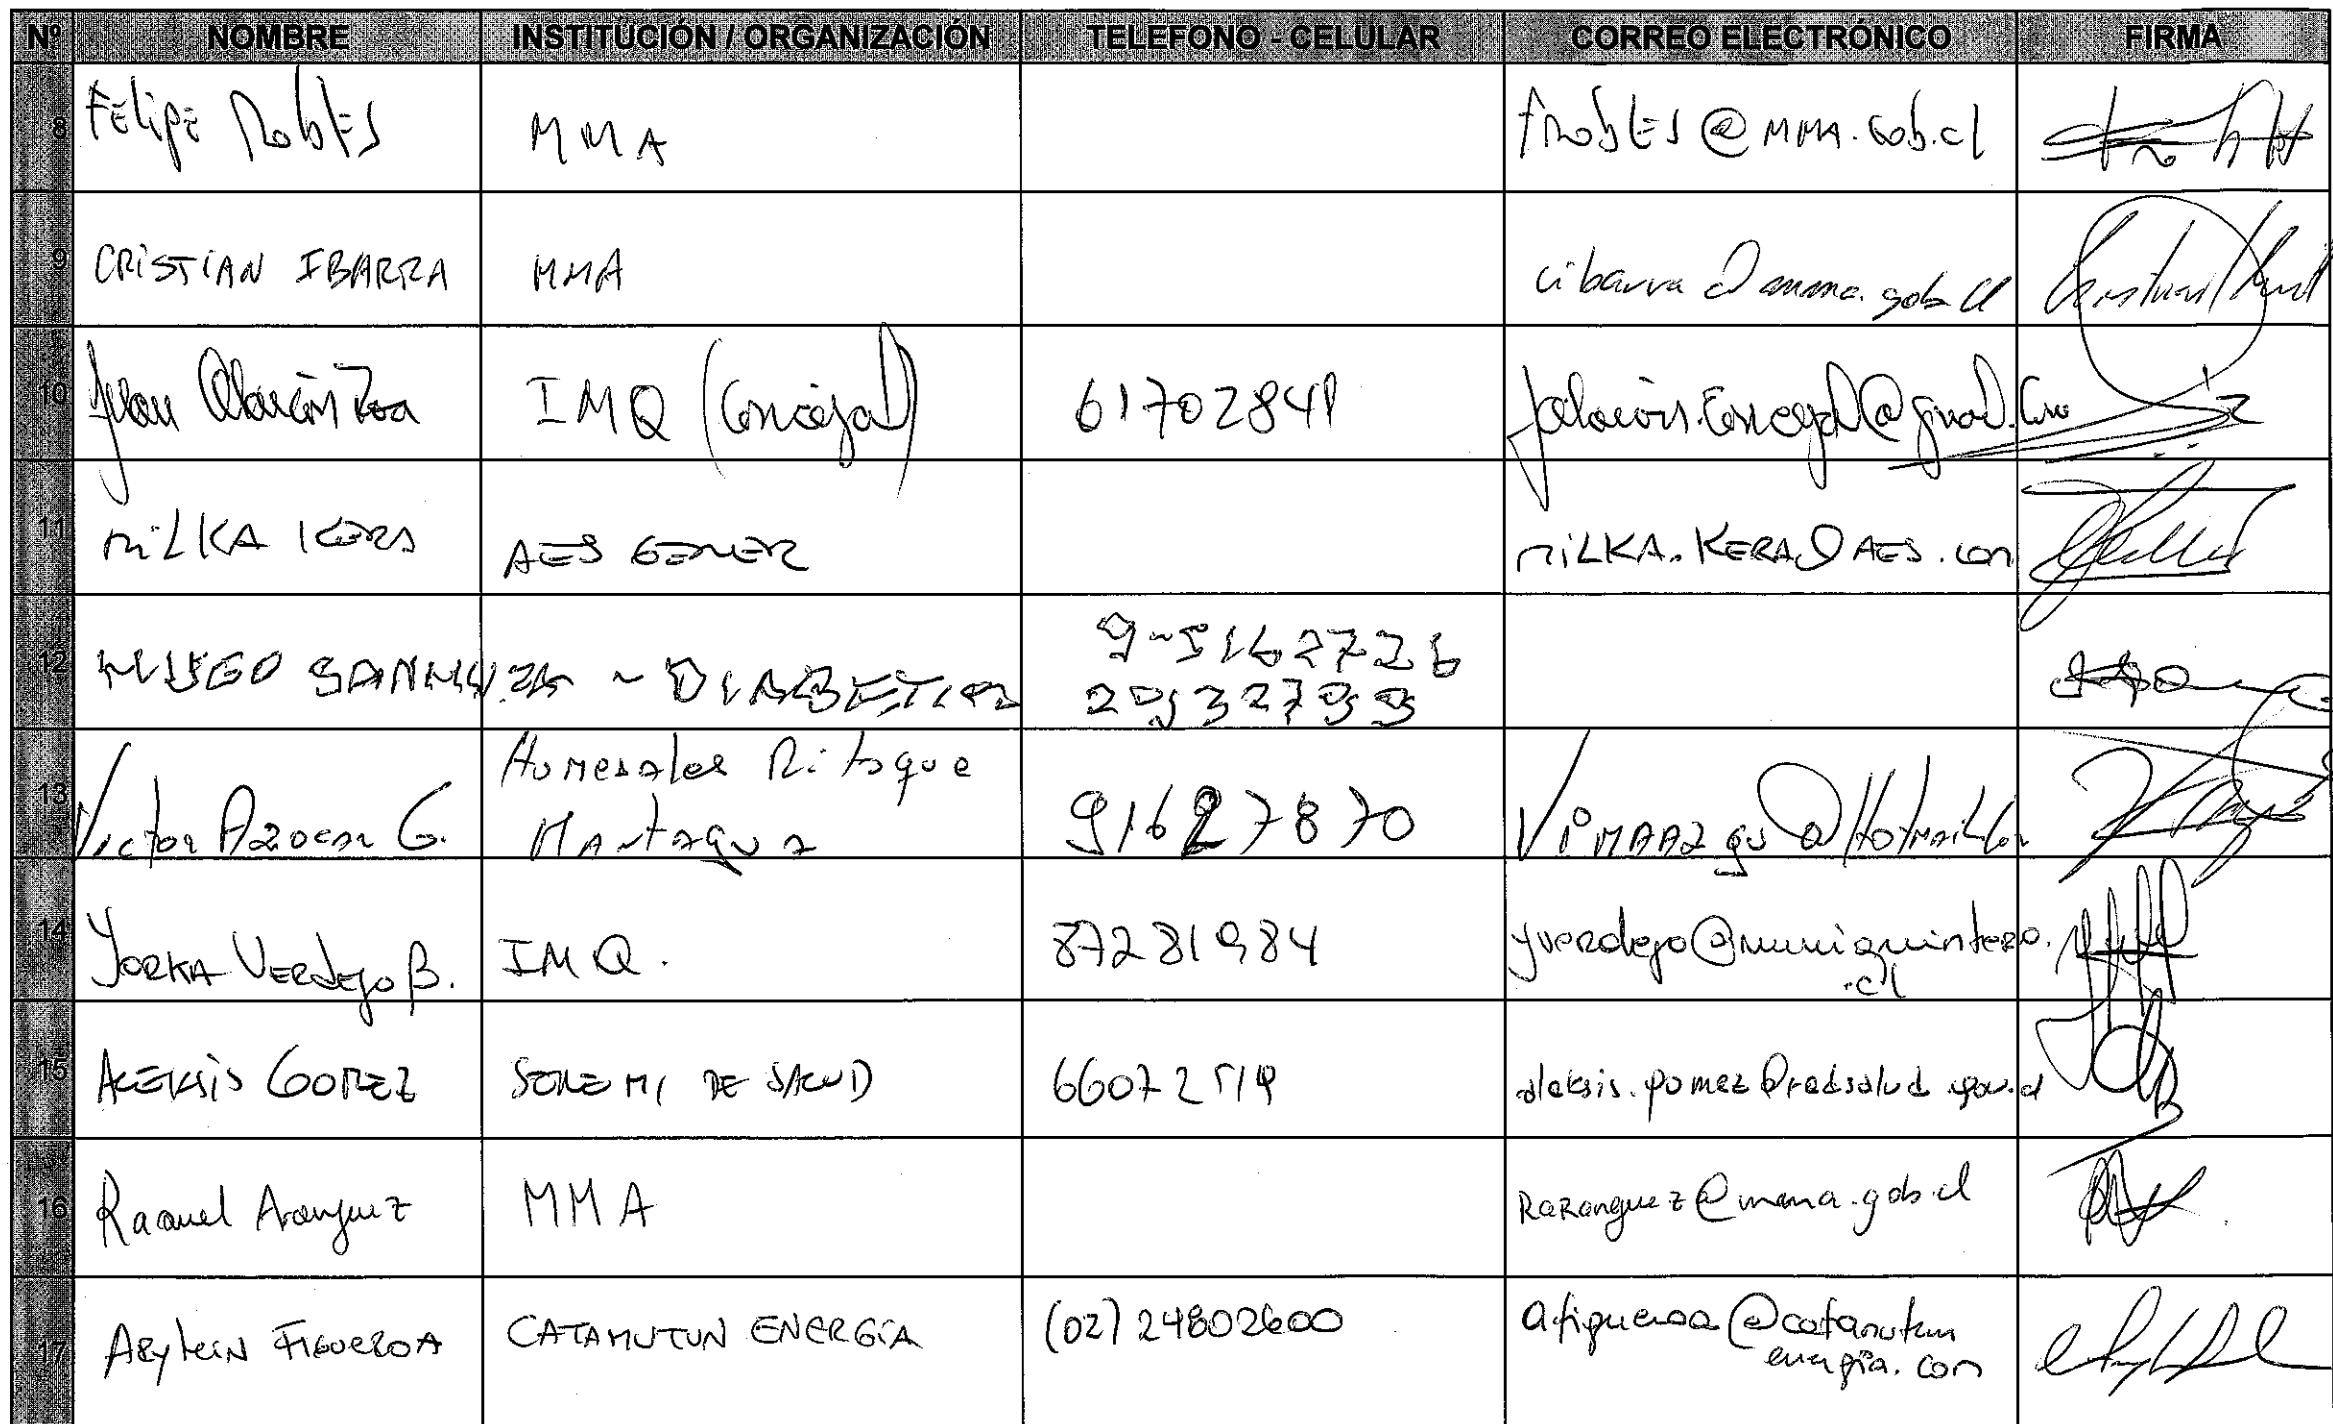 Nº NOMBRE INSTITUCIÓN / ORGANIZACIÓN TELEFONO - CELULAR CORREO ELECTRÓNICO FIRMA
8 Felipe Robles MMA frobles@MMA.Gob.cl
9 CRISTIAN IBARRA MMA cibarra@mma.gob.cl
10 Juan Alarcón IMQ (Concejal) 61702841
11 MILKA KERA AES GENER MILKA.KERA@AES.com
12 HUGO SANHUEZA - DIABETICO 9-5162726
13 Victor Azocar G. Humedales Ritoque
Mantagua 91627870
14 YORKA VERDEJO B. IMQ. 87281984 yverdejo@muniquintero.
.cl
15 ALEKSIS GOMEZ SEREMI DE SALUD aleksis.gomez@redsalud.gov.cl
16 Raquel Aranguez MMA RaRanguez@mma.gob.cl
17 FIGUEROA CATAMUTUN ENERGÍA (02) 24802600 afigueroa@catamutun
energia.com